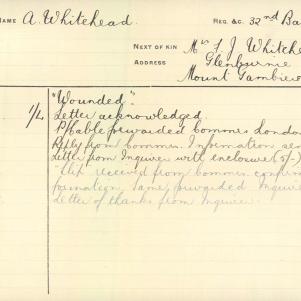 NAME A. Whitehead. REG. &C. 32nd Ba
NEXT OF KIN Mrs F. J. Whiteh
ADDRESS Glenburnie
Mount Gambier
"Wounded".
1/4 Letter acknowledged.
P/cable forwarded Commrs London
Reply from Commrs. Information sen
Letter from Inquirer with enclosure (5/-)
Slip received from Commrs confirm
formation, same forwarded Inquire
Letter of thanks from Inquirer.